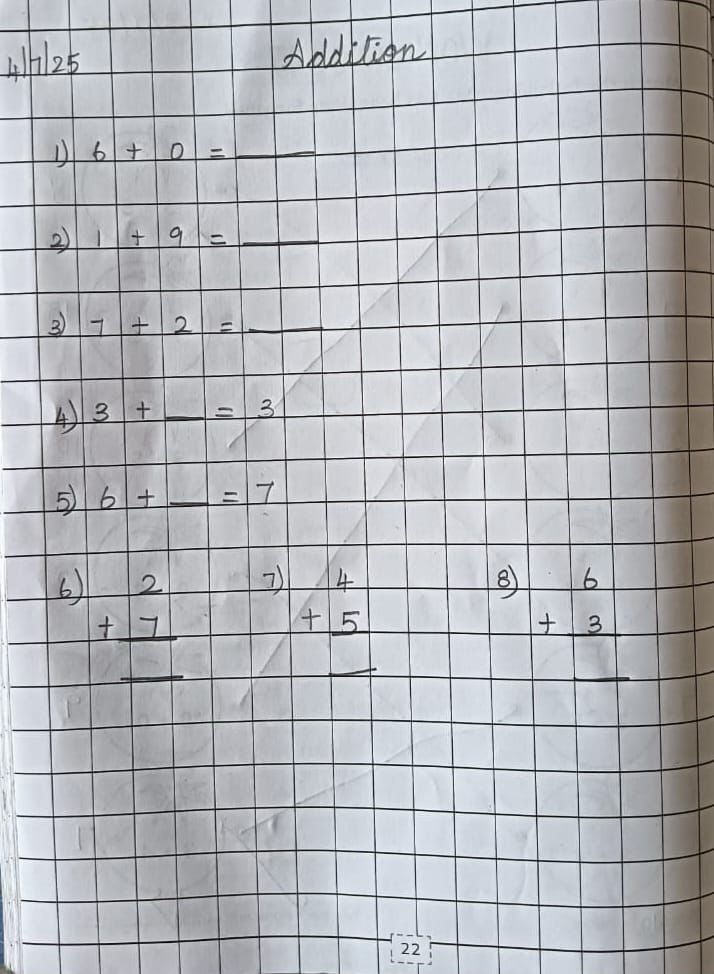 4/7/25 Addition
1) 6 + 0 = ___
2) 1 + 9 = ___
3) 7 + 2 = ___
4) 3 + __ = 3
5) 6 + __ = 7
6) 2 7) 4 8) 6
+ 7 + 5 + 3
22